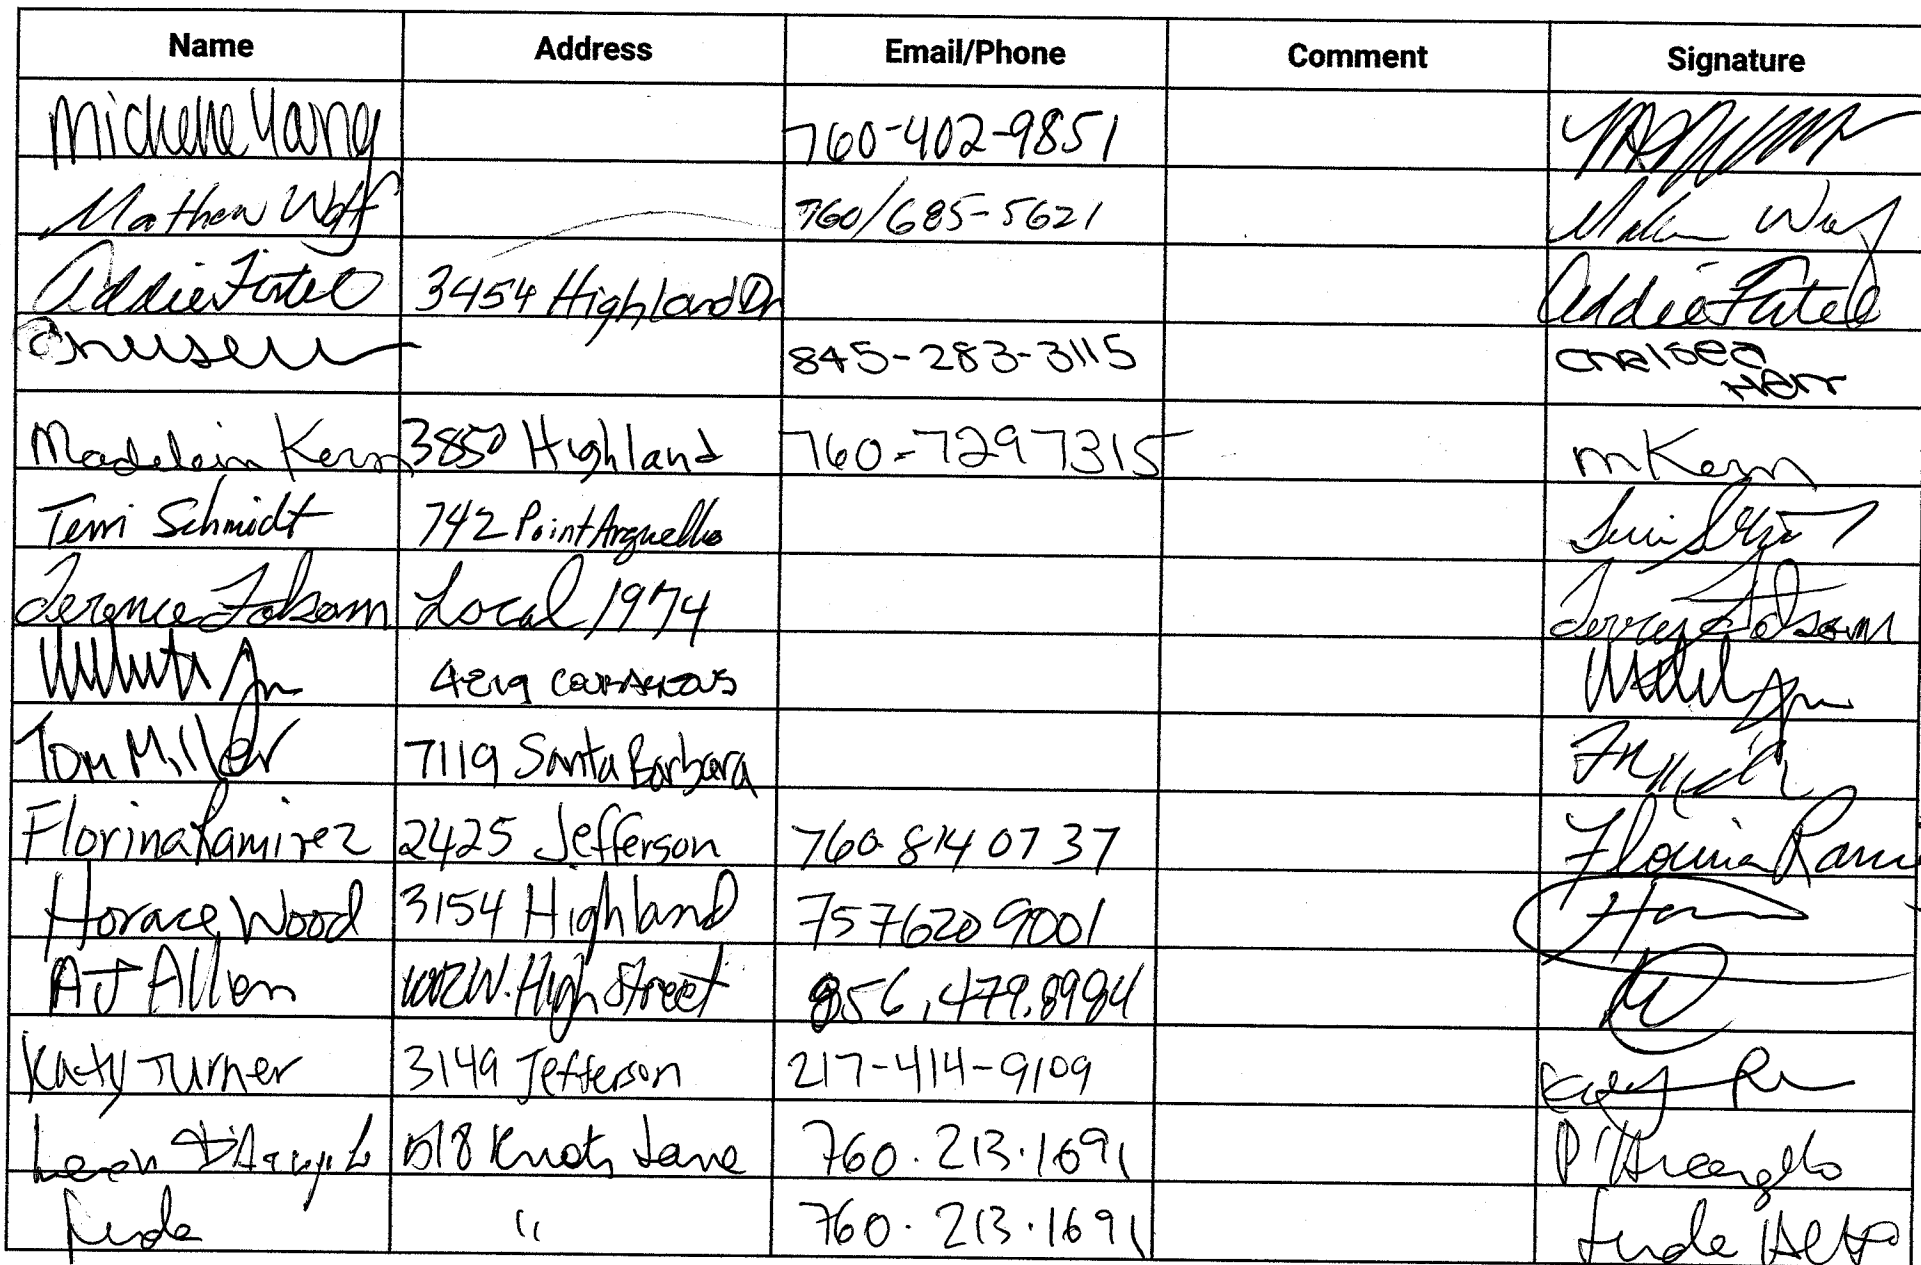 Name Address Email/Phone Comment Signature
Michelle Yang 760-402-9851
Mathew Wolf 760/685-5621
Addie Fatel 3454 Highland Dr Addie Fatel
845-283-3115 Chelsea
Herr
Madelein Kern 3850 Highland 760-7297315 m Kern
Terri Schmidt 742 Point Arguello
Terence Folsom Local 1974 Terry Folsom
4219
Tom Miller 7119 Santa Barbara
Florina Ramirez 2425 Jefferson 760 814 07 37 Florina Rami
Horace Wood 3154 Highland 757 620 9001
AJ Allen 1002 W. High Street 856.479.8984
Katy Turner 3149 Jefferson 217-414-9109
518 Knots Lane 760.213.1691 D'Arcangelo
Linda " 760.213.1691 Linda